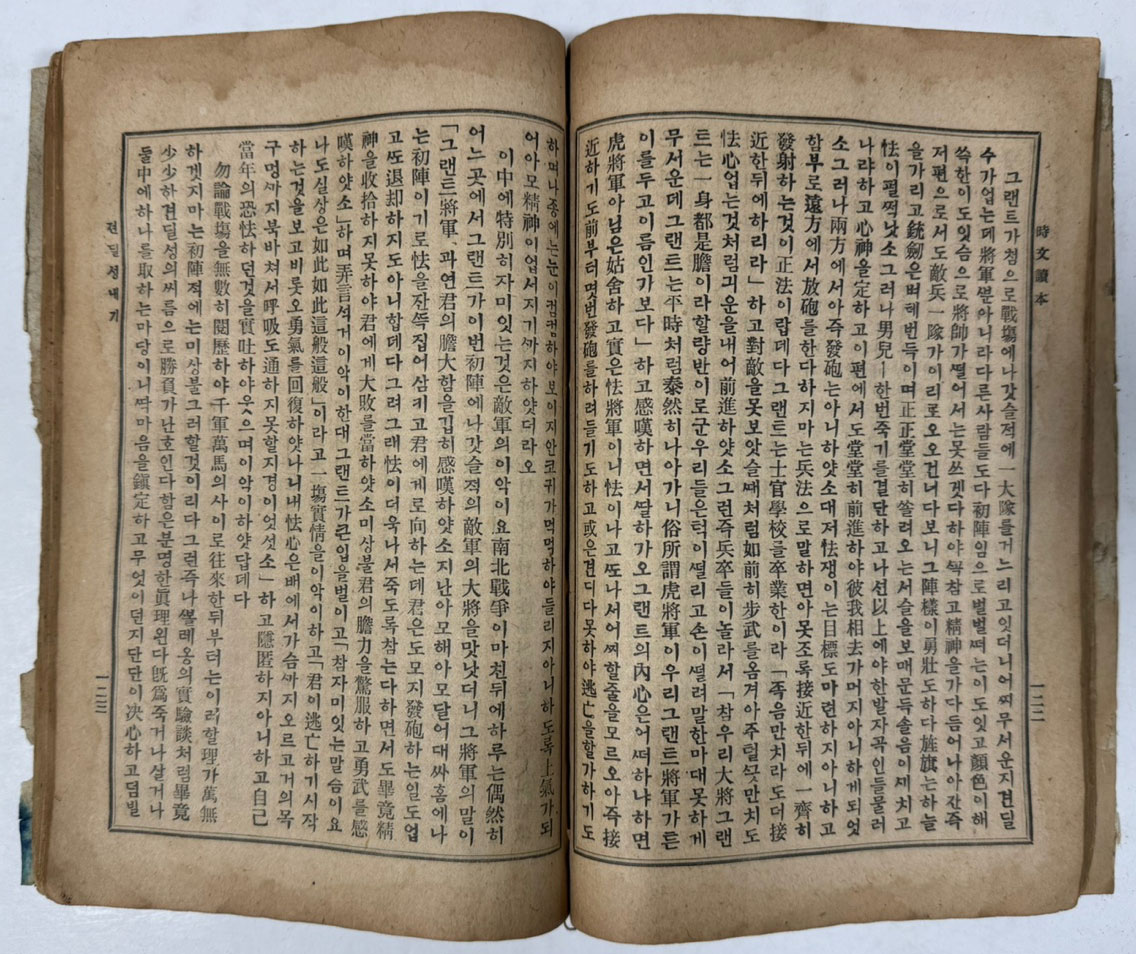 時文讀本
그랜트가청으로戰塲에나갓슬적에一大隊를거느리고잇더니어찌무서운지견딜
수가업는데將軍뿐아니라다른사람들도다初陣임으로벌벌떠는이도잇고顔色이해
쓱한이도잇슴으로將帥가떨어서는못쓰겟다하야꾹참고精神을가다듬어나아잔즉
저편으로서도敵兵一隊가이리로오오건너다보니그陣樣이勇壯도하다旌旗는하늘
을가리고銃劒은벼헤번득이며正正堂堂히쓸려오는서슬을보매문득솔음이께치고
怯이펄쩍낫소그러나男兒ㅣ한번죽기를결단하고나선以上에야한발자곡인들물러
나랴하고心神을定하고이편에서도堂堂히前進하야彼我相去가머지아니하게되엇
소그러나兩方에서아즉發砲는아니하얏소대저怯쟁이는目標도마련하지아니하고
함부로遠方에서放砲를한다하지마는兵法으로말하면아못조록接近한뒤에一齊히
發射하는것이正法이랍데다그랜트는士官學校를卒業한이라「족음만치라도더接
近한뒤에하리라」하고對敵을못보앗슬때처럼如前히步武를옴겨아주털끗만치도
怯心업는것처럼긔운을내어前進하얏소그런즉兵卒들이놀라서「참우리大將그랜
트는一身都是膽이라할량반이로군우리들은턱이떨리고손이떨려말한마대못하게
무서운데그랜트는平時처럼泰然히나아가니俗所謂虎將軍이우리그랜트將軍가튼
이를두고이름인가보다」하고感嘆하면서딸하가오그랜트의內心은어떠하냐하면
虎將軍아님은姑舍하고實은怯將軍이니怯이나고또나서어찌할줄을모르오아즉接
近하기도前부터몃번發砲를하려들기도하고或은견디다못하야逃亡을할가하기도
一二二
하며나종에는눈이컴컴하야보이지안코귀가먹먹하야들리지아니하도록上氣가되
어아모精神이업서지기까지하얏더라오
이中에特別히자미잇는것은敵軍의이악이요南北戰爭이마친뒤에하루는偶然히
어느곳에서그랜트가이번初陣에나갓슬적의敵軍의大將을맛낫더니그將軍의말이
「그랜트將軍、과연君의膽大함을깁히感嘆하얏소지난아모해아모달어대싸홈에나
는初陣이기로怯을잔뜩집어삼키고君에게로向하는데君은도모지發砲하는일도업
고또退却하지도아니합데다그려그래怯이더욱나서죽도록참는다하면서도畢竟精
神을收拾하지못하야君에게大敗를當하얏소미상불君의膽力을驚服하고勇武를感
嘆하얏소」하며弄言석거이악이한대그랜트가큰입을벌이고「참자미잇는말슴이요
나도실상은如此如此這般這般」이라고一塲實情을이악이하고「君이逃亡하기시작
하는것을보고비롯오勇氣를回復하얏나니내怯心은배에서가슴까지오르고거의목
구멍까지북바쳐서呼吸도通하지못할지경이엇섯소」하고隱匿하지아니하고自己
當年의恐怯하던것을實吐하야웃으며이악이하얏답데다
勿論戰塲을無數히閱歷하야千軍萬馬의사이로往來한뒤부터는이러할理가萬無
하겟지마는初陣적에는미상불그러할것이리다그런즉나뽈레옹의實驗談처럼畢竟
少少하견딜성의씨름으로勝負가난호인다함은분명한眞理윈다旣爲죽거나살거나
둘中에하나를取하는마당이니딱마음을鎭定하고무엇이던지단단이決心하고덤빌
견딜성내기
一二三